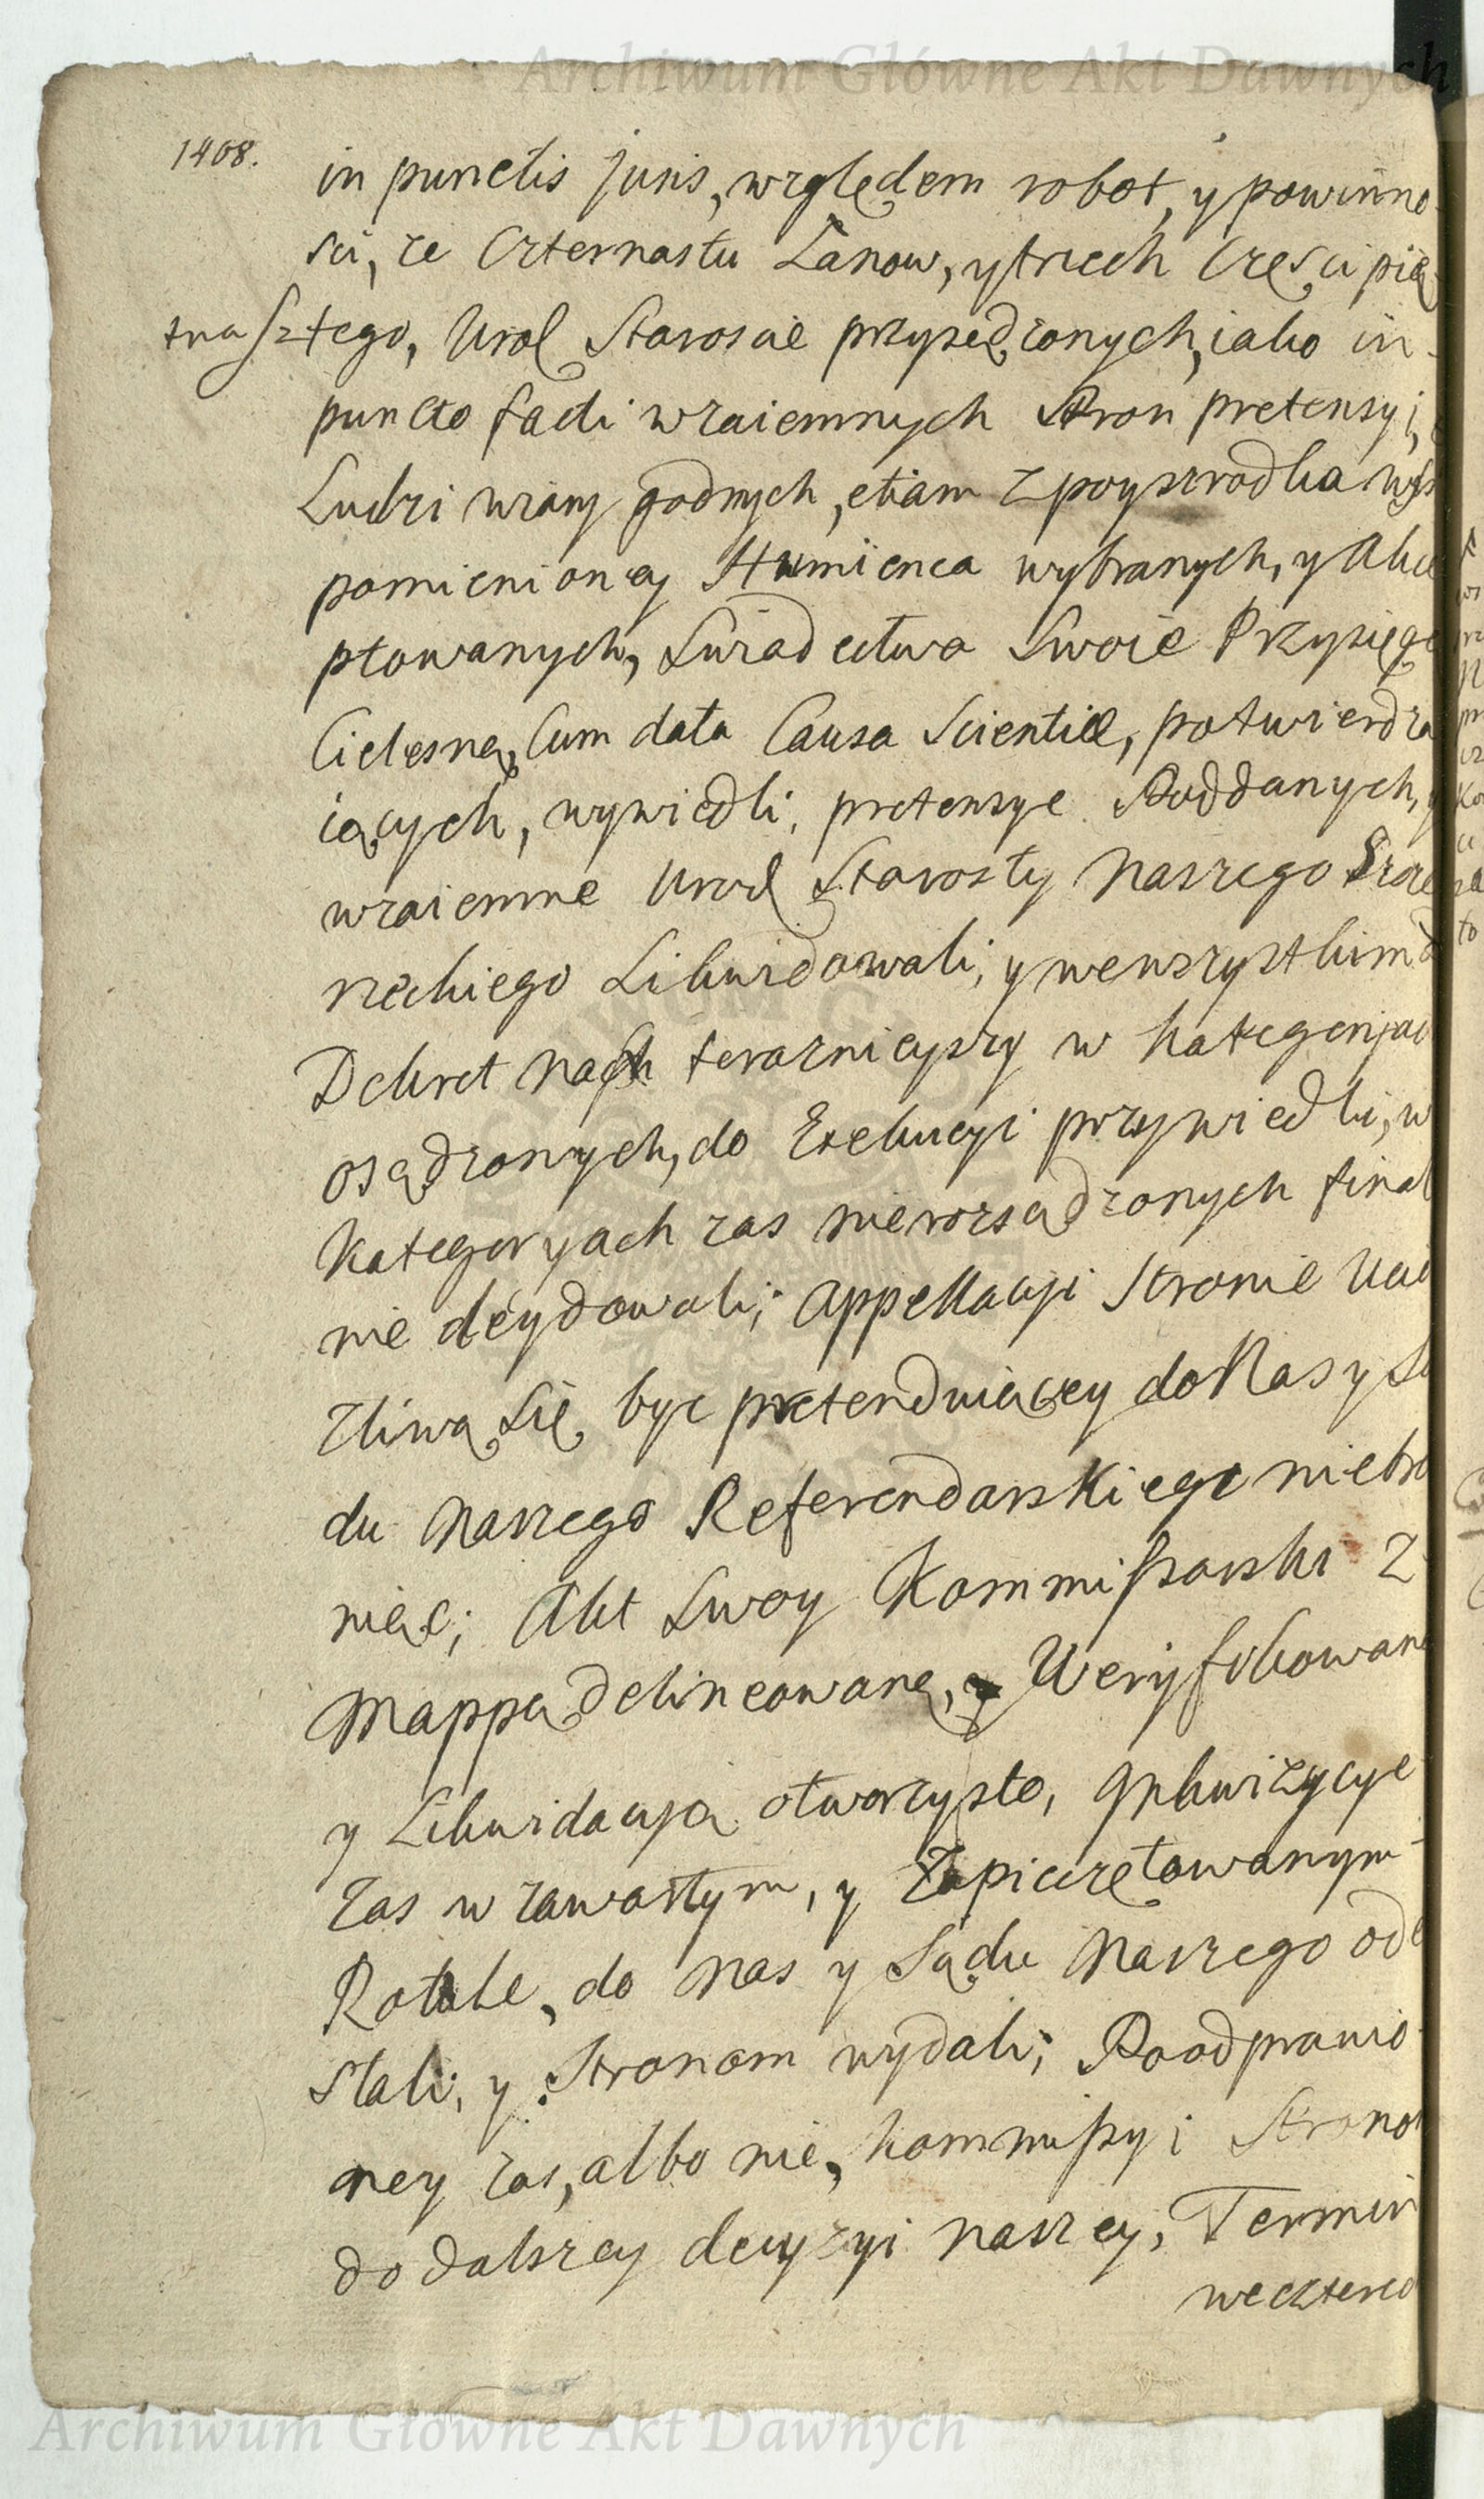 Archiwum Główne Akt Dawnych
1408.
in punctis juris, względem robot, y powinno-
sci, ze Czternastu Łanow, y trzech Częsci pię-
tnasztego, Urod Staroscie przysędzonych, iako in
puncto facti wzaiemnych Stron pretensyi,
Ludzi wiary godnych, etiam z poyszrodka wys
pomienioney Stumienca wybranych, y Akce
ptowanych, Swiadectwa Swoie Przysięgą
Cielesną, Cum data Causa Scientiæ, potwierdza
iących, wywiedli, pretensye Poddanych, y
wzaiemne Urod Starosty Naszego
neckiego Likwidowali, y we wszystkim
Dekret Nasz teraznieyszy w Kategoryac
osądzonych, do Exekucyi przywiedli, w
Kategoryach zas nierozsądzonych final
nie decydowali; Appellacyi Stronie Uci
zliwą Się byc pretenduiącey do Nas y Są
du Naszego Referendarskiego niebro
niąc; Akt Swoy Kommissarski z
Mappą delineowaną, y Weryfikowaną
y Likwidacyą otworzysto, Inkwizycye
Zas w zawartym, y Zapieczętowanym
Rotule, do Nas y Sądu Naszego ode
słali, y Stronom wydali; Po odprawio-
ney zas, albo nie, kommissyi Strono
do dalszey decyzyi naszey, Termin
weczterod
Archiwum Główne Akt Dawnych